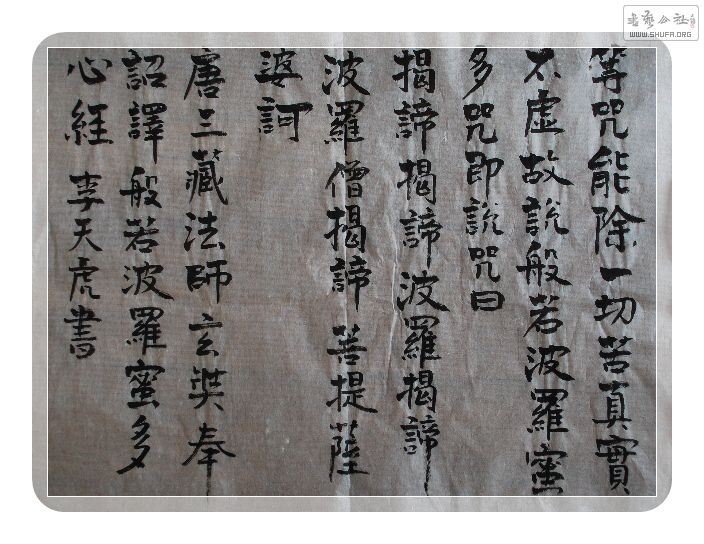 等咒能除一切苦真實
不虛故說般若波羅蜜
多咒即說咒曰
揭諦揭諦波羅揭諦
波羅僧揭諦菩提薩
婆訶
唐三藏法師玄奘奉
詔譯般若波羅蜜多
心經 李天虎書
書藝公社
WWW.SHUFA.ORG